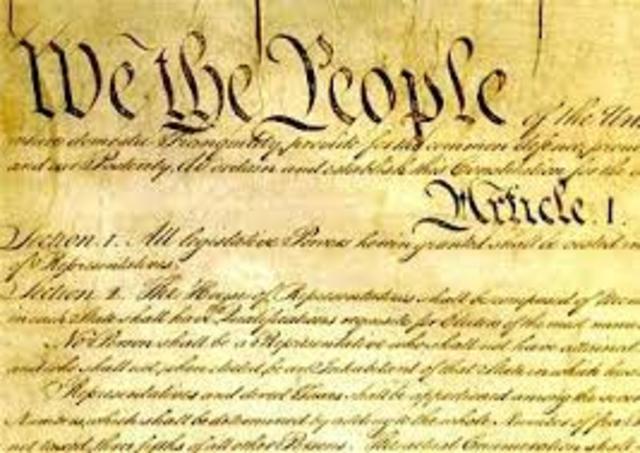 We the People of the Un
insure domestic Tranquility, provide for the common defence, promo
and our Posterity, do ordain and establish this Constitution for the
Article. I.
Section. 1. All legislative Powers herein granted shall be vested in
of Representatives.
Section. 2. The House of Representatives shall be composed of Mem
in each State shall have Qualifications requisite for Electors of the most nume
No Person shall be a Representative who shall not have attained
and who shall not, when elected, be an Inhabitant of that State in which he
Representatives and direct Taxes shall be apportioned among the seve
Numbers, which shall be determined by adding to the whole Number of free
not taxed, three fifths of all other Persons. The actual Enumeration shall